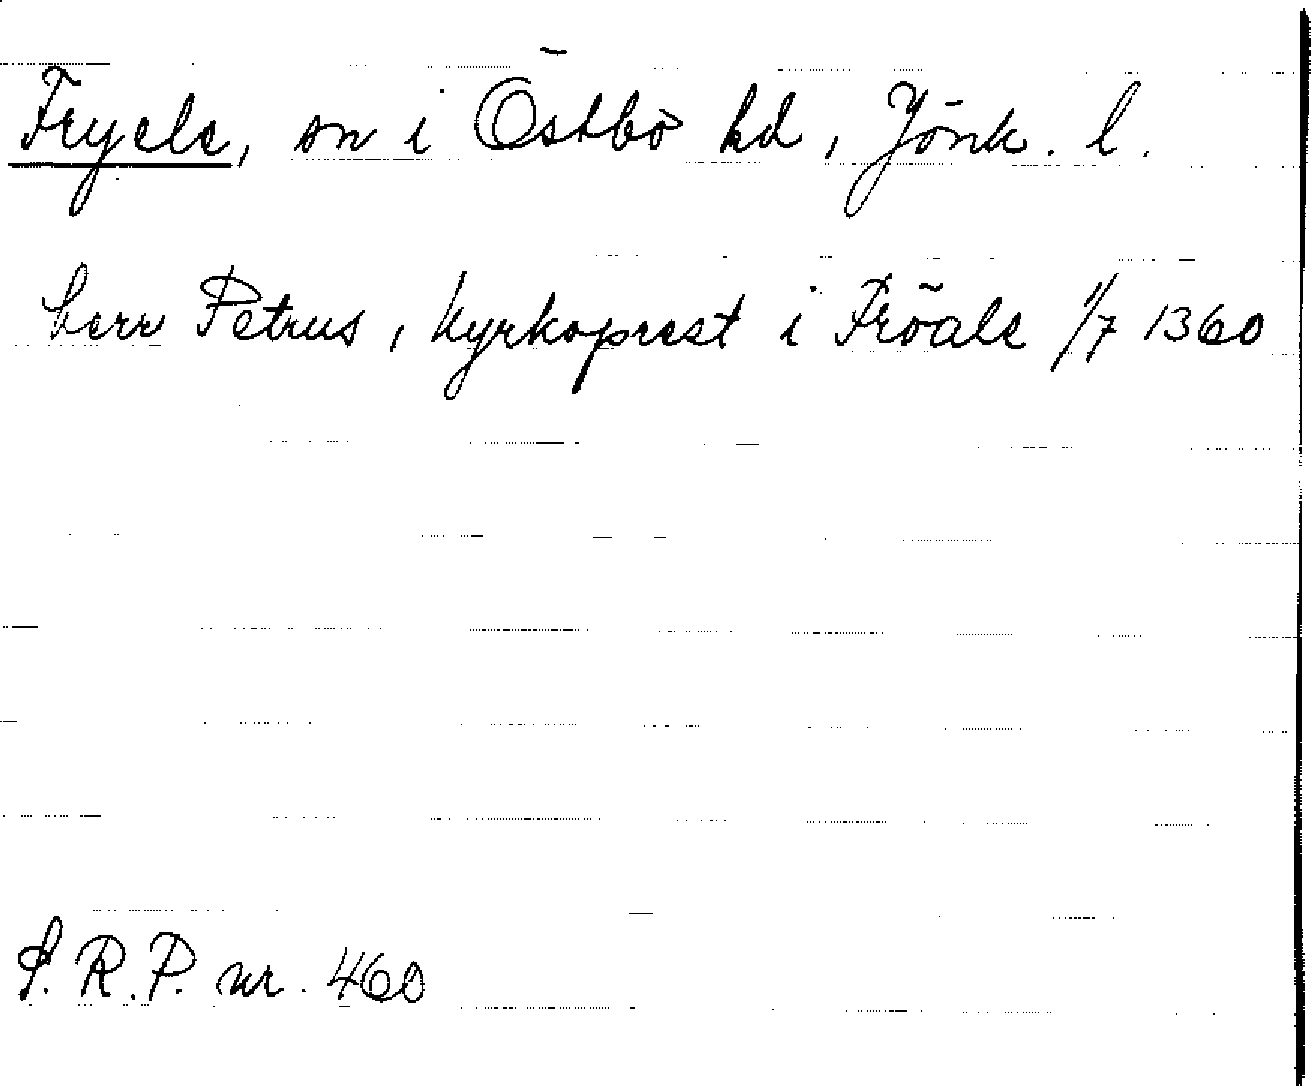 Fryele, sn i Östbo hd, Jönk. l.
herr Petrus, kyrkoprest i Fröale 1/7 1360
S.R.P. nr. 460